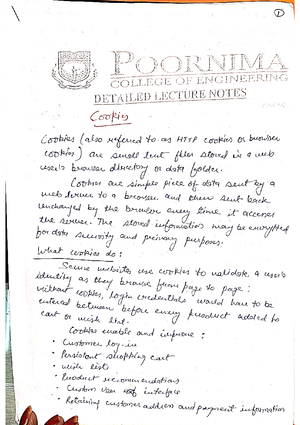 1
POORNIMA
COLLEGE OF ENGINEERING
DETAILED LECTURE NOTES
Cookies
Cookies (also referred to as HTTP cookies or browser
cookies) are small text files stored in a web
user's browser directory or data folder.
Cookies are simple piece of data sent by a
web server to a browser and then sent back
unchanged by the browser every time it accesses
the server. The stored information may be encrypted
for data security and privacy purposes.
What cookies do:
Secure websites use cookies to validate a user's
identity as they browse from page to page;
without cookies, login credentials would have to be
entered between before every product added to
cart or wish list.
Cookies enable and improve:
• Customer log-in
• Persistant shopping cart
• wish lists
• Product recommendations
• Custom user interface
• Retaining customer address and payment information